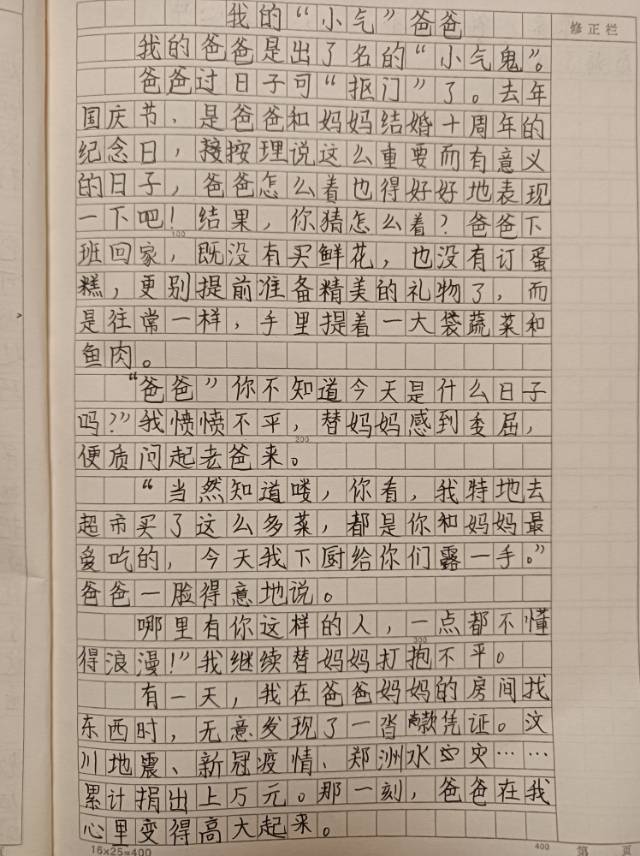 我的“小气”爸爸
修正栏
我的爸爸是出了名的“小气鬼”。
爸爸过日子可“抠门”了。去年
国庆节，是爸爸和妈妈结婚十周年的
纪念日，按理说这么重要而有意义
的日子，爸爸怎么着也得好好地表现
一下吧！结果，你猜怎么着？爸爸下
100
班回家，既没有买鲜花，也没有订蛋
糕，更别提前准备精美的礼物了，而
是往常一样，手里提着一大袋蔬菜和
鱼肉。
“爸爸”你不知道今天是什么日子
吗？”我愤愤不平，替妈妈感到委屈，
200
便质问起老爸来。
“当然知道喽，你看，我特地去
超市买了这么多菜，都是你和妈妈最
爱吃的，今天我下厨给你们露一手。”
爸爸一脸得意地说。
哪里有你这样的人，一点都不懂
300
得浪漫！”我继续替妈妈打抱不平。
有一天，我在爸爸妈妈的房间找
东西时，无意发现了一沓款凭证。汶
川地震、新冠疫情、郑洲水灾……
累计捐出上万元。那一刻，爸爸在我
心里变得高大起来。
16x25=400
400
第 页